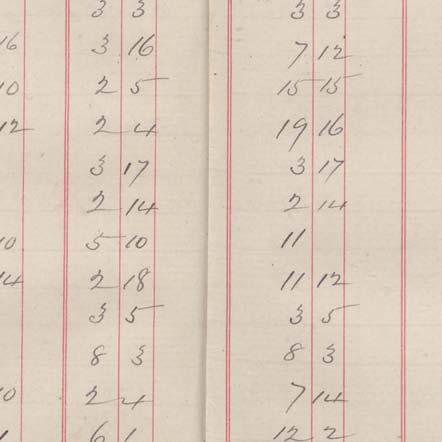 3 3 3 3
16 3 16 7 12
10 2 5 15 15
12 2 4 19 16
3 17 3 17
2 14 2 14
10 5 10 11
14 2 18 11 12
3 5 3 5
8 3 8 3
10 2 4 7 14
6 1 12 2